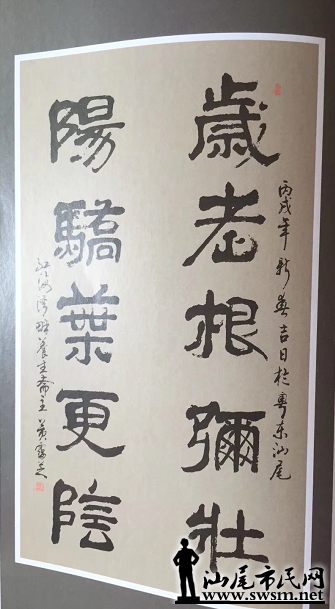 歲老根彌壯
丙戌年新春吉日於粵東汕尾
陽驕葉更陰
養生齋主黃
汕尾市民网
www.swsm.net